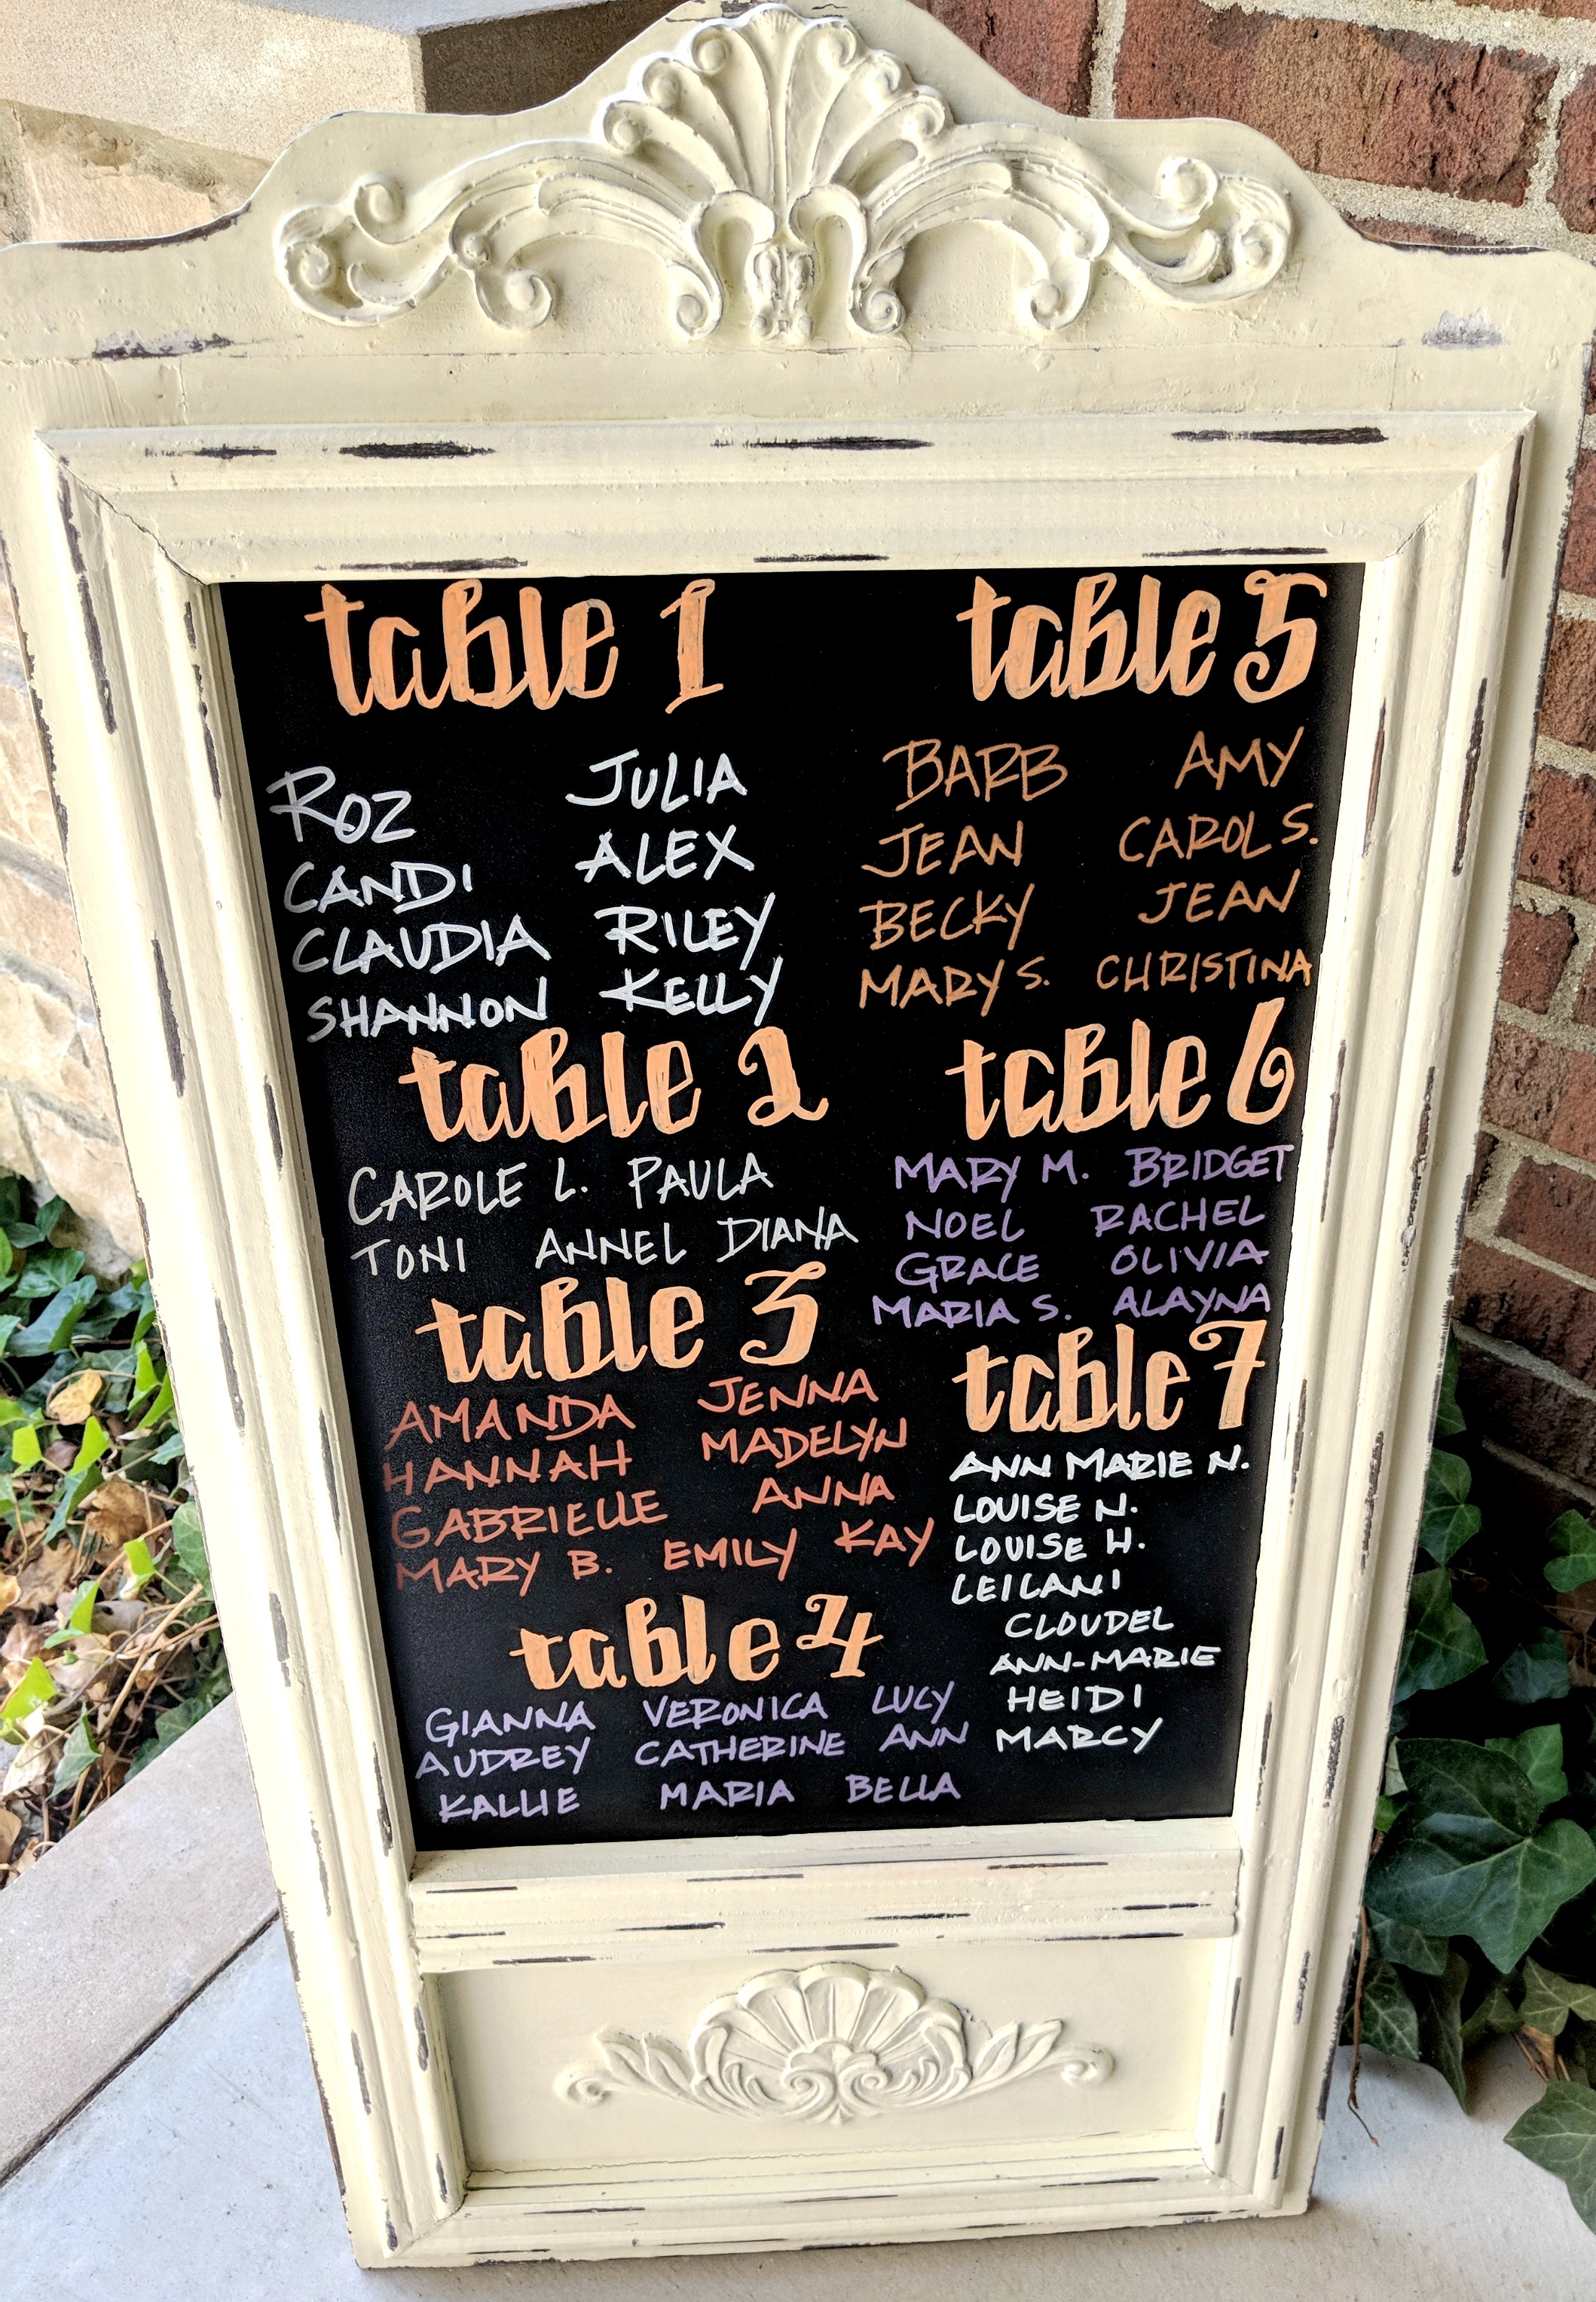 table 1
ROZ JULIA
CANDI ALEX
CLAUDIA RILEY
SHANNON KELLY
table 2
CAROLE L. PAULA
TONI ANNEL DIANA
table 3
AMANDA JENNA
HANNAH MADELYN
GABRIELLE ANNA
MARY B. EMILY KAY
table 4
GIANNA VERONICA LUCY
AUDREY CATHERINE ANN
KALLIE MARIA BELLA
table 5
BARB AMY
JEAN CAROL S.
BECKY JEAN
MARY S. CHRISTINA
table 6
MARY M. BRIDGET
NOEL RACHEL
GRACE OLIVIA
MARIA S. ALAYNA
table 7
ANN MARIE N.
LOUISE N.
LOUISE H.
LEILANI
CLOUDEL
ANN-MARIE
HEIDI
MARCY